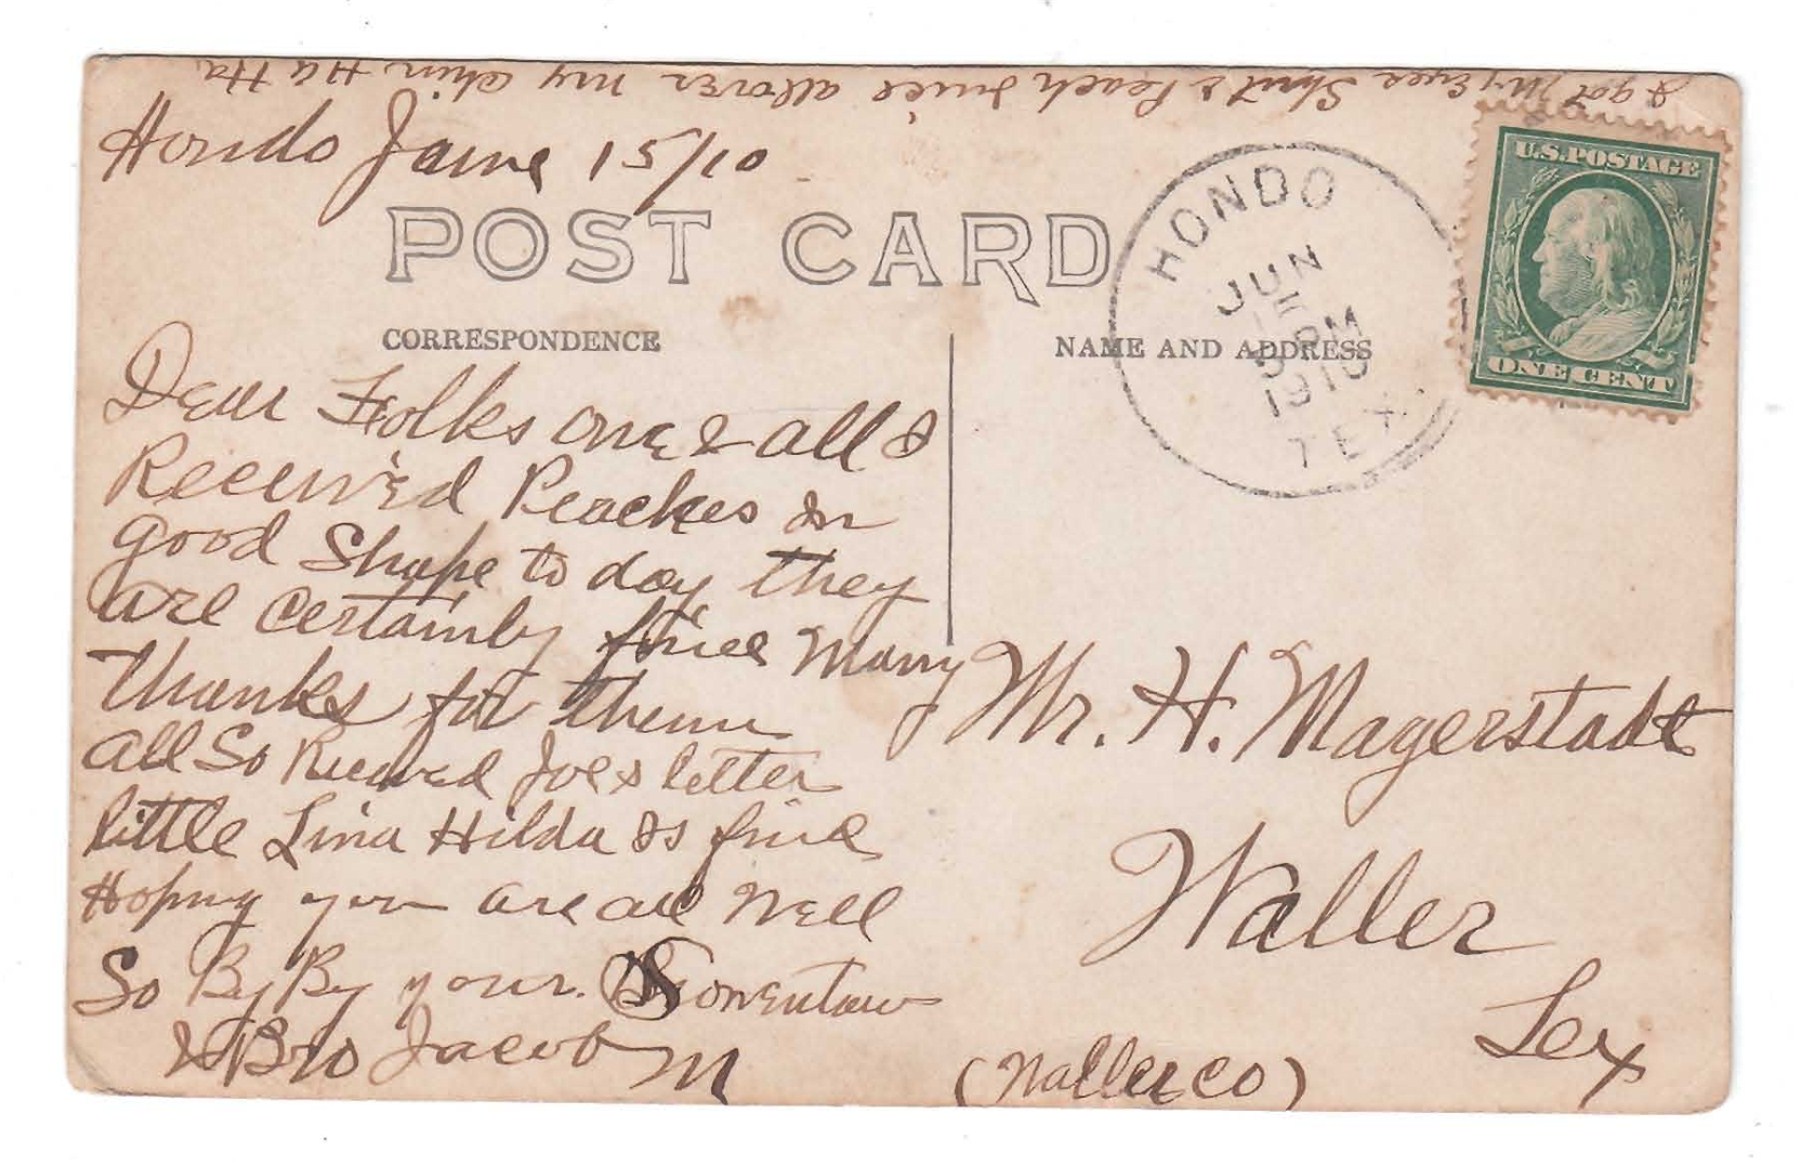 I got My Eyes Shut & Peach Juice all over my chin Ha Ha
Hondo June 15/10
POST CARD
CORRESPONDENCE
NAME AND ADDRESS
HONDO
JUN
15
PM
1910
TEX.
U.S. POSTAGE
ONE CENT
Dear Folks one & all I
Received Peaches In
good Shape to day they
are certainly fine Many
thanks for them
all So Received Joes letter
little Lina Hilda Is fine
Hoping you are all well
So By By your
& Bro Jacob M
Mr. H. Magerstadt
Waller
Tex
(Waller Co)